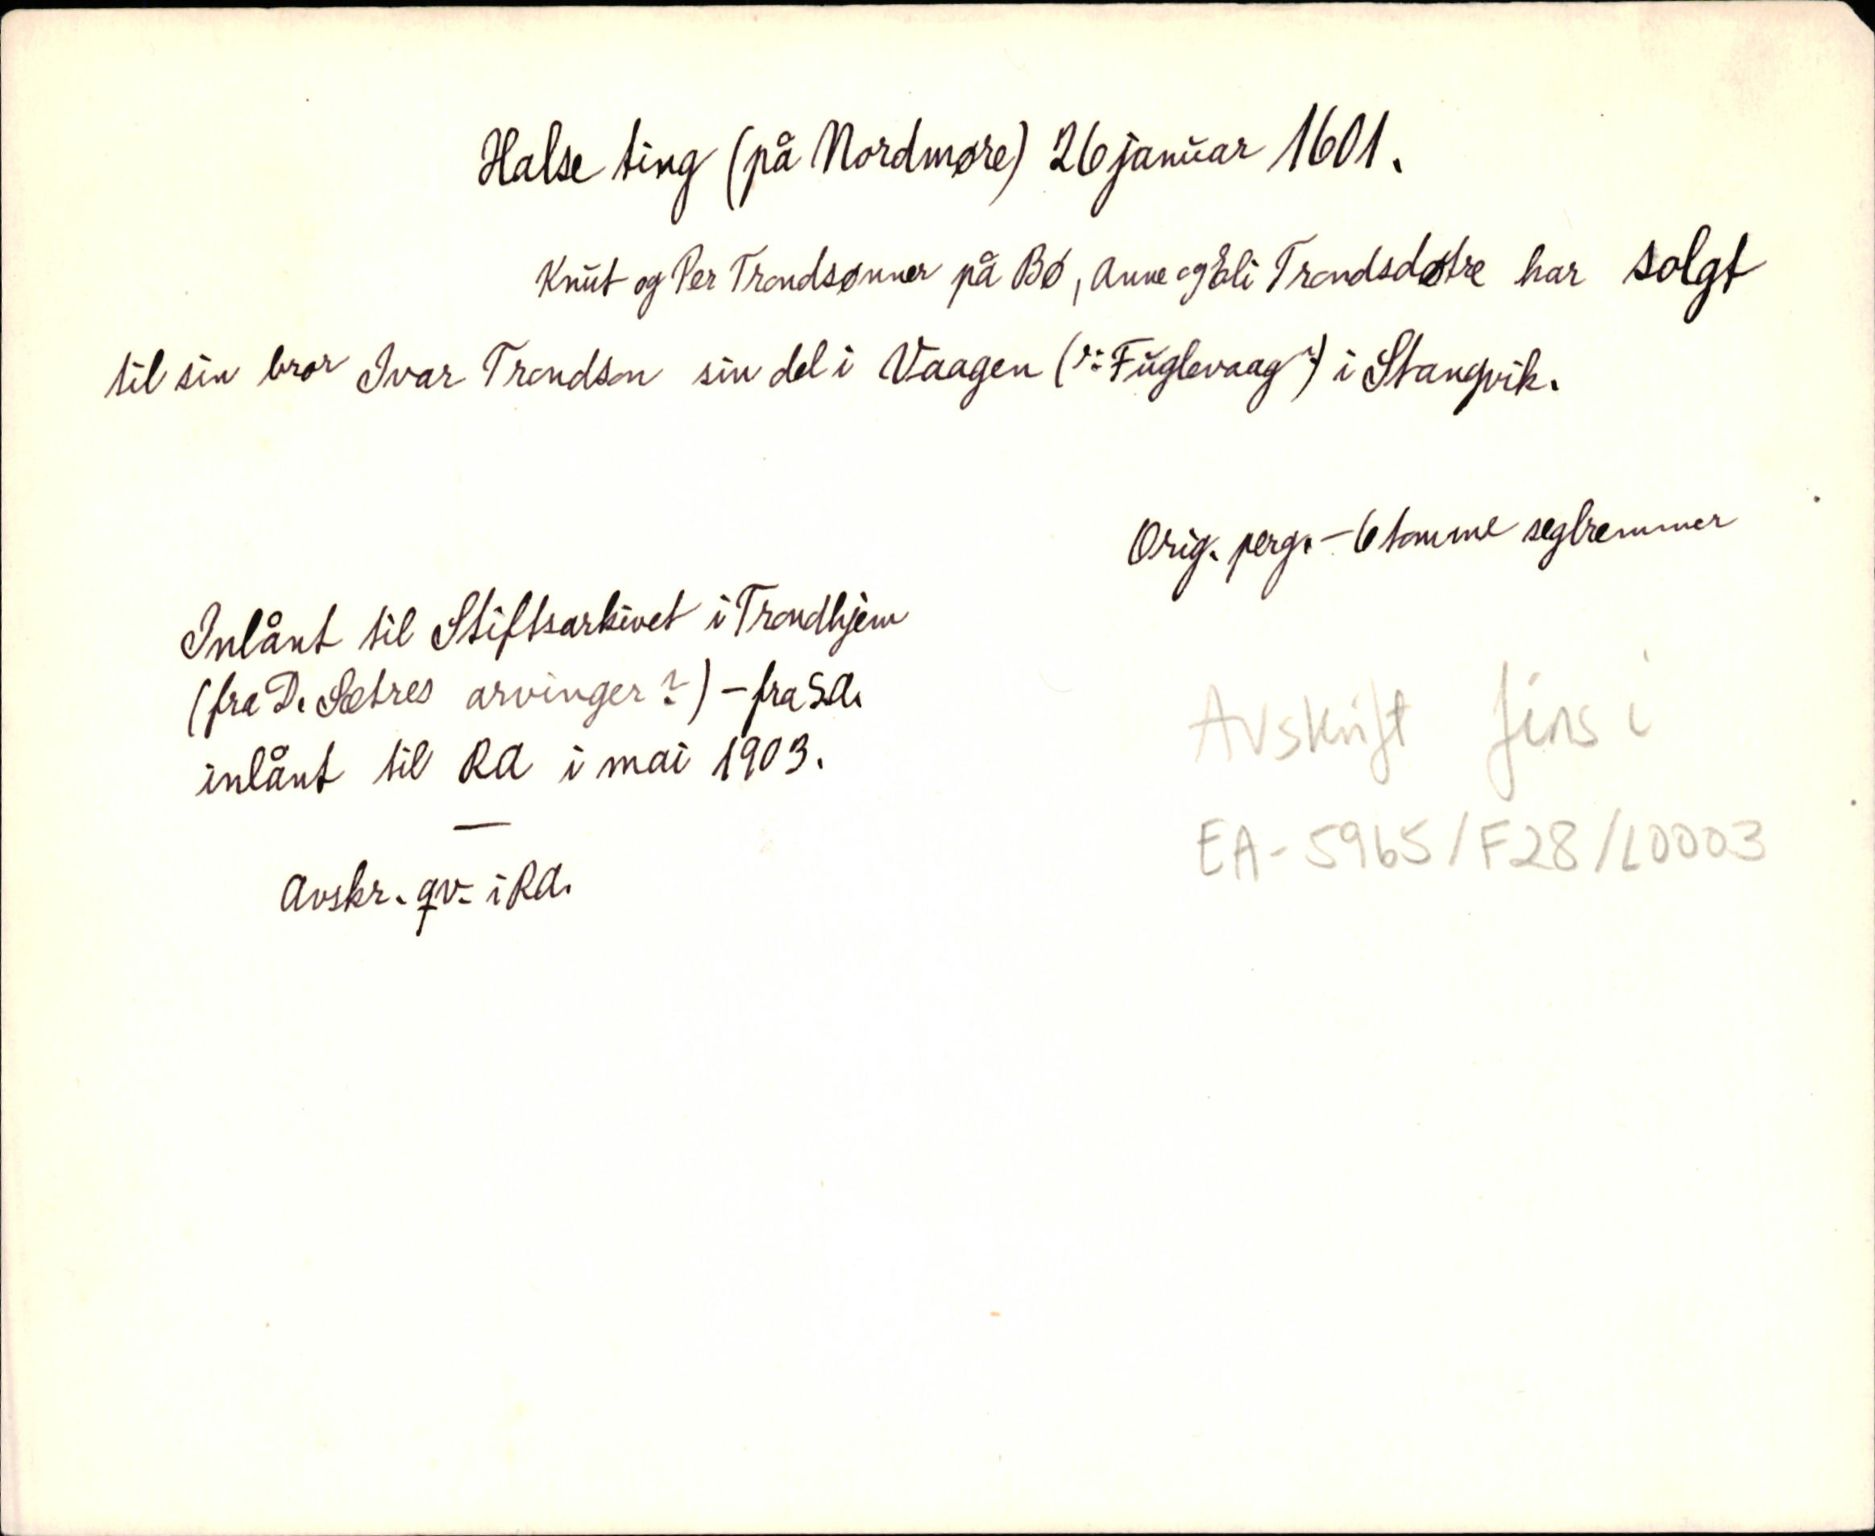 Halse ting (på Nordmøre) 26 januar 1601.
Knut og Per Trondsønner på Bø, Anne og Eli Trondsdøtre har solgt
til sin bror Ivar Trondson sin del i Vaagen (ɔ: Fuglevaag?) i Stangvik.
Orig. perg. – 6 tomme seglremmer
Inlånt til Stiftsarkivet i Trondhjem
(fra D. Sætres arvinger?) – fra SA.
inlånt til RA i mai 1903.
Avskr. qv. i RA.
Avskrift fins i
EA-5965/F28/L0003